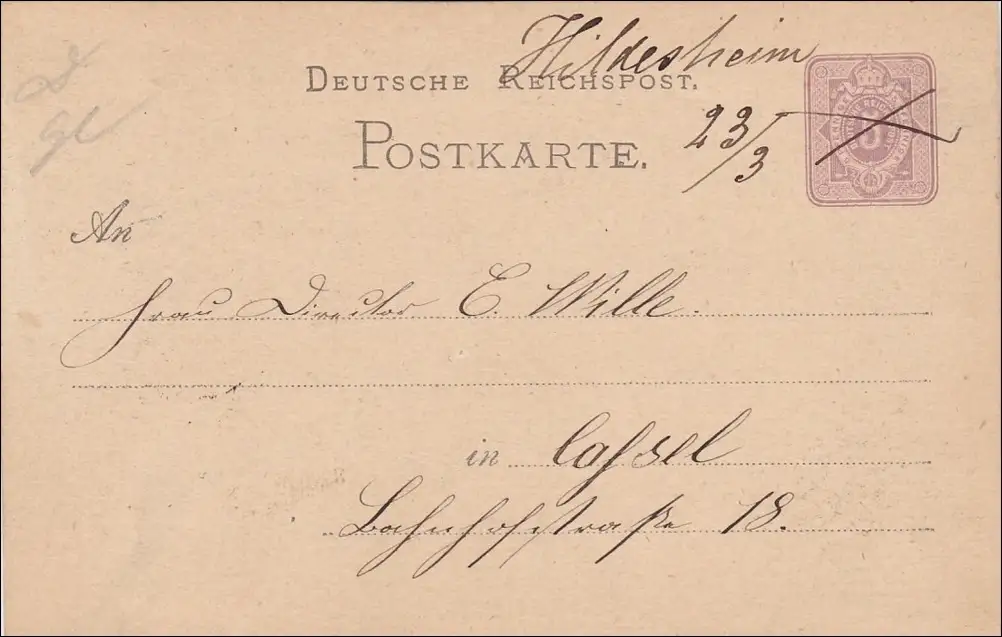 Hildesheim
DEUTSCHE REICHSPOST.
23/3
POSTKARTE.
An
Frau Director E. Wille.
in Cassel
Bahnhofstraße 18.